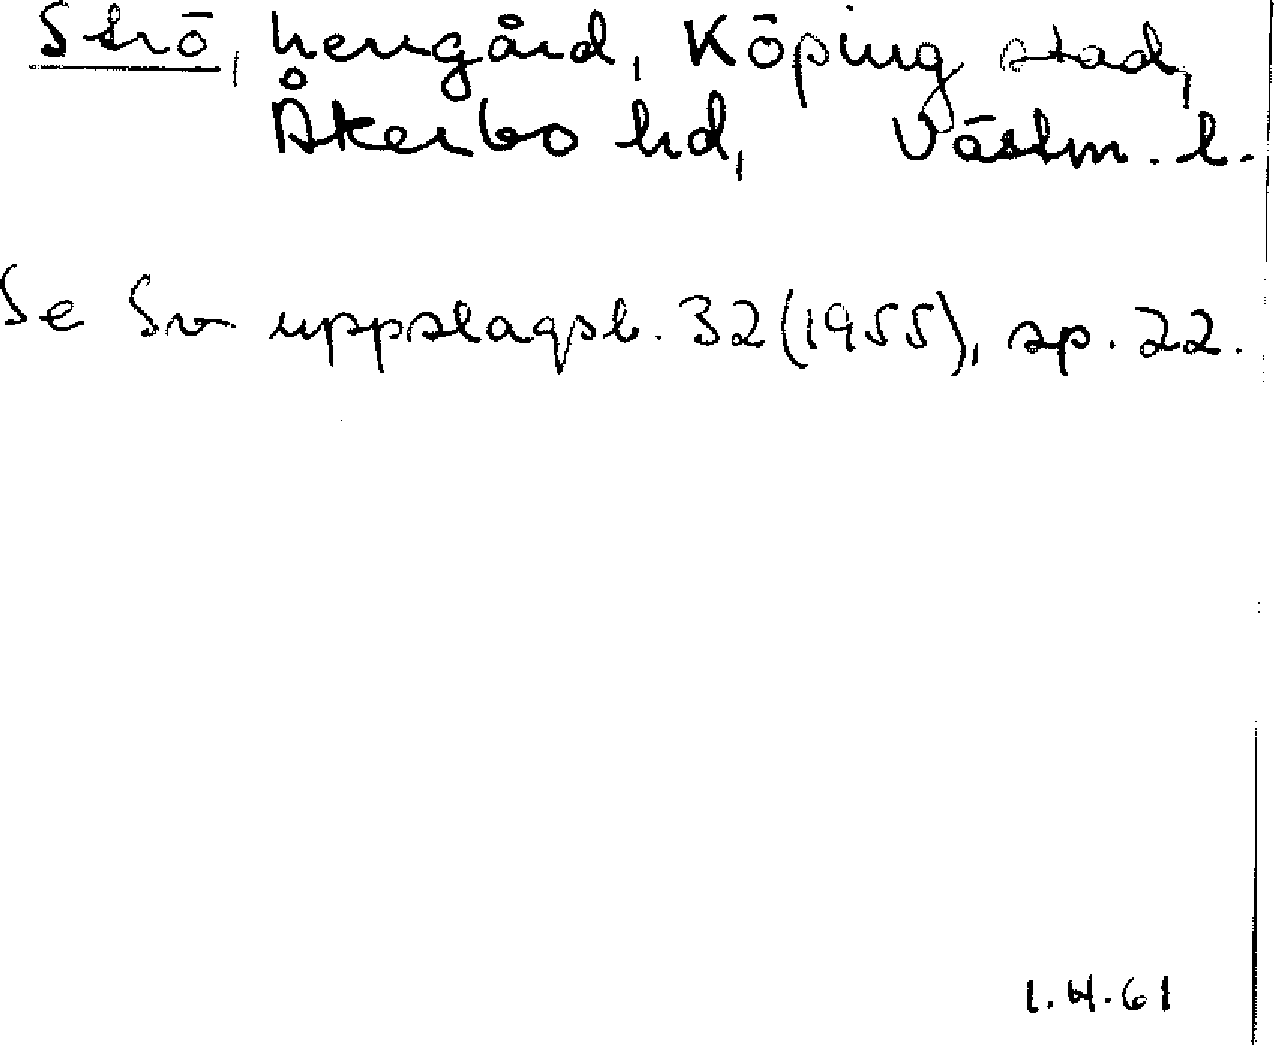 Strö, herrgård, Köping stad,
Åkerbo hd, Västm. l.
Se Sv uppslagsb. 32 (1955), sp. 22.
1.4.61